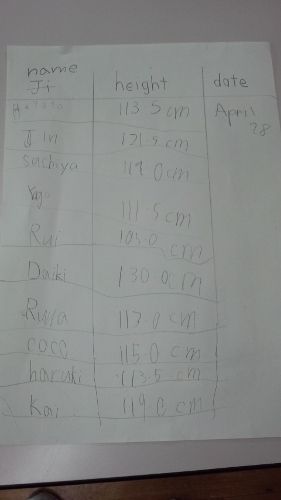 name height date
Ji
113.5 cm April
Jin 121.5 cm 28
Sachiya 119.0cm
111.5cm
Rui 105.0 cm
Daiki 130.0cm
117.0 cm
coco 115.0 cm
haruki 113.5 cm
Kai 119.0 cm